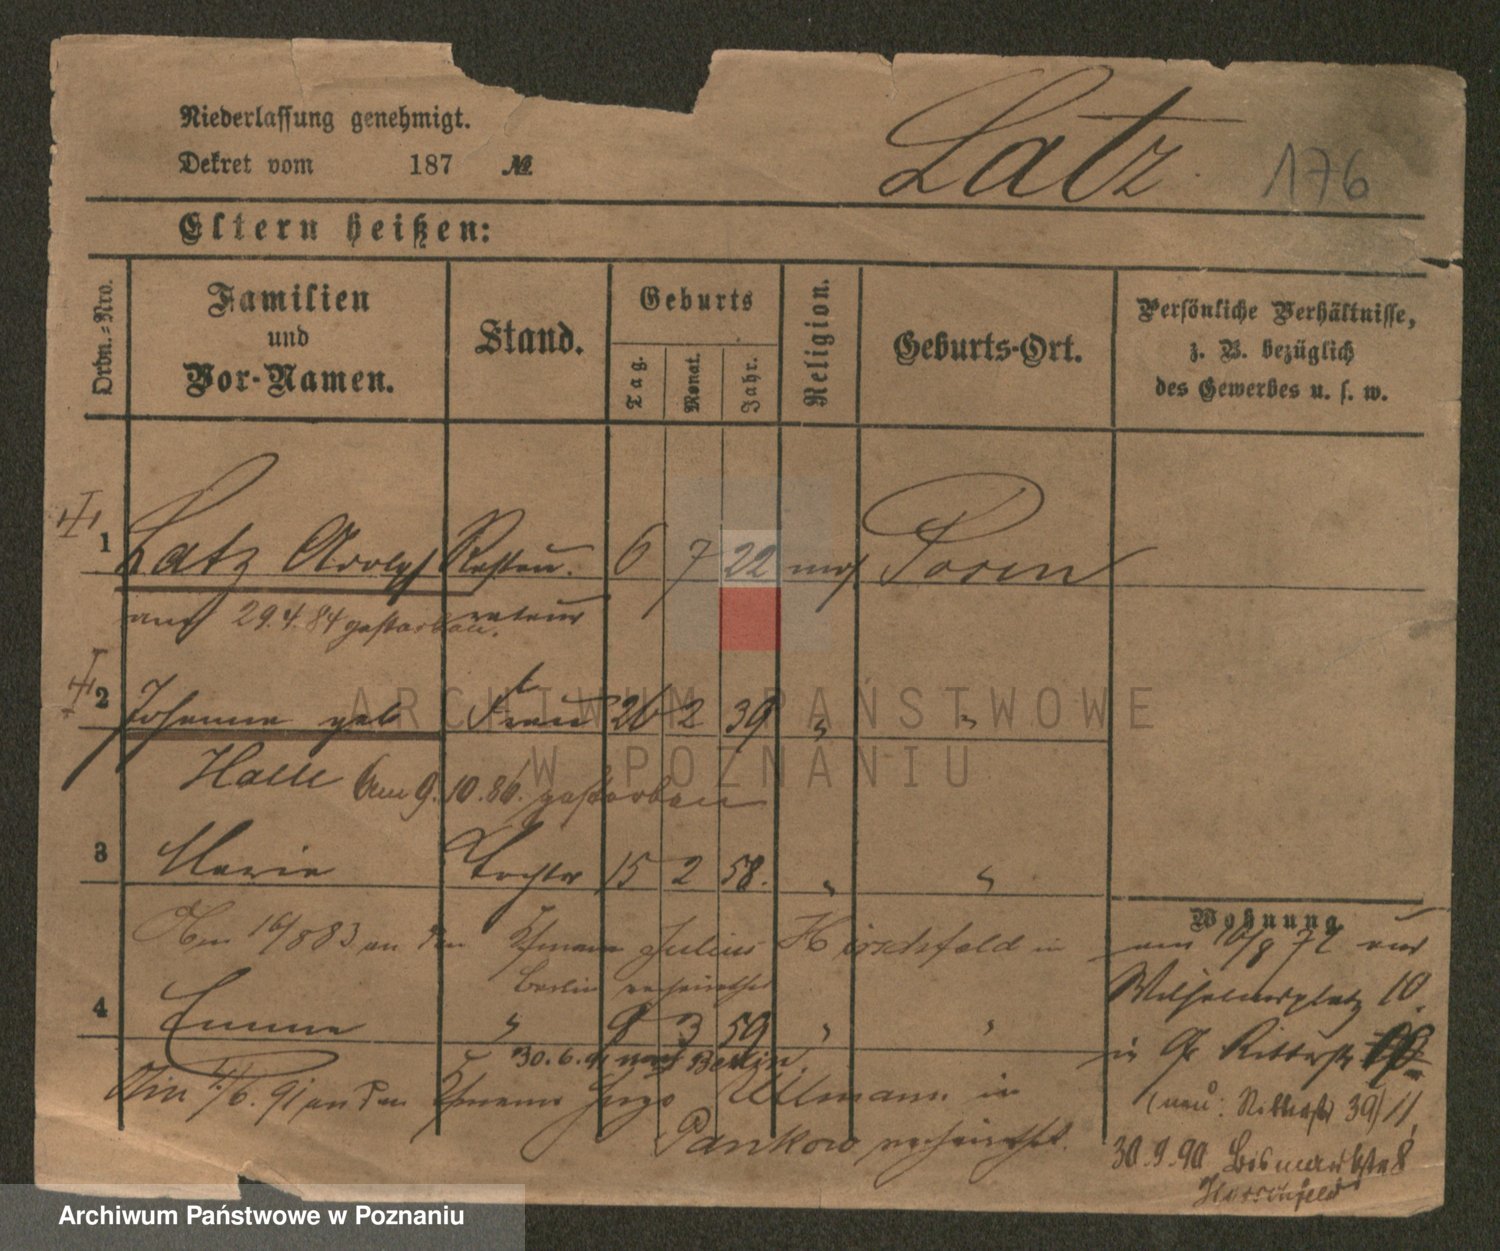 Niederlassung genehmigt.
Dekret vom 187 №
Latz 176
Eltern heißen:
Ordn.-Nro.
Familien
und
Vor-Namen.
Stand.
Geburts
Tag.
Monat.
Jahr.
Religion.
Geburts-Ort.
Persönliche Verhältnisse,
z. B. bezüglich
des Gewerbes u. s. w.
1 Latz Adolph Restau- 6 7 22 mos Posen
am 29.4.84 gestorben. rateur
2 Johanna geb Frau 26 2 39 " "
Halle Am 9.10.86. gestorben
3 Marie Tochter 15 2 58. " "
Wohnung
16/8 83 an den Kfmann Julius Hirschfeld in
Berlin verheirathet
4 Emma " 9 3 59 " "
30.6.91 nach Berlin.
/6.91 an den Kfmann Hugo Ullmann in
Pankow verheirathet.
am 10/8 72
Wilhelmsplatz 10.
in Gr Ritterstr
(neu: Ritterstr 39) 11
30.9.90 Bismarckstr 8
ARCHIWUM PAŃSTWOWE
W POZNANIU
Archiwum Państwowe w Poznaniu